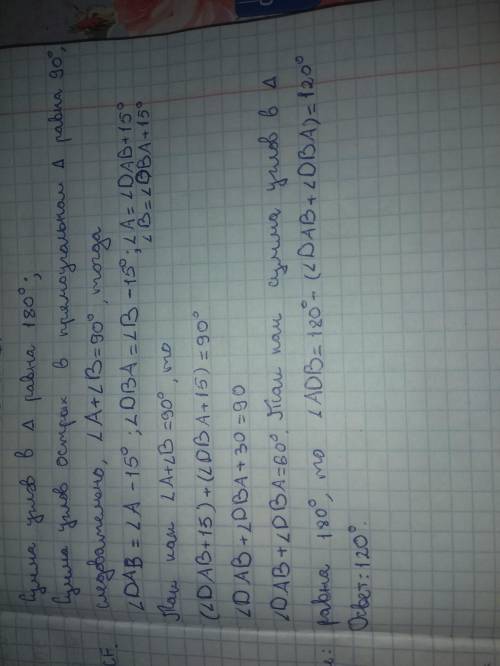 Сумма углов в Δ равна 180°;
Сумма углов острых в прямоугольном Δ равна 90°,
следовательно, ∠A+∠B=90°, тогда
∠DAB=∠A-15°; ∠DBA=∠B-15°; ∠A=∠DAB+15°
∠B=∠DBA+15°
Так как ∠A+∠B=90°, то
(∠DAB+15)+(∠DBA+15)=90°
∠DAB+∠DBA+30=90
∠DAB+∠DBA=60°. Так как сумма углов в Δ
равна 180°, то ∠ADB=180°-(∠DAB+∠DBA)=120°
Ответ: 120°.